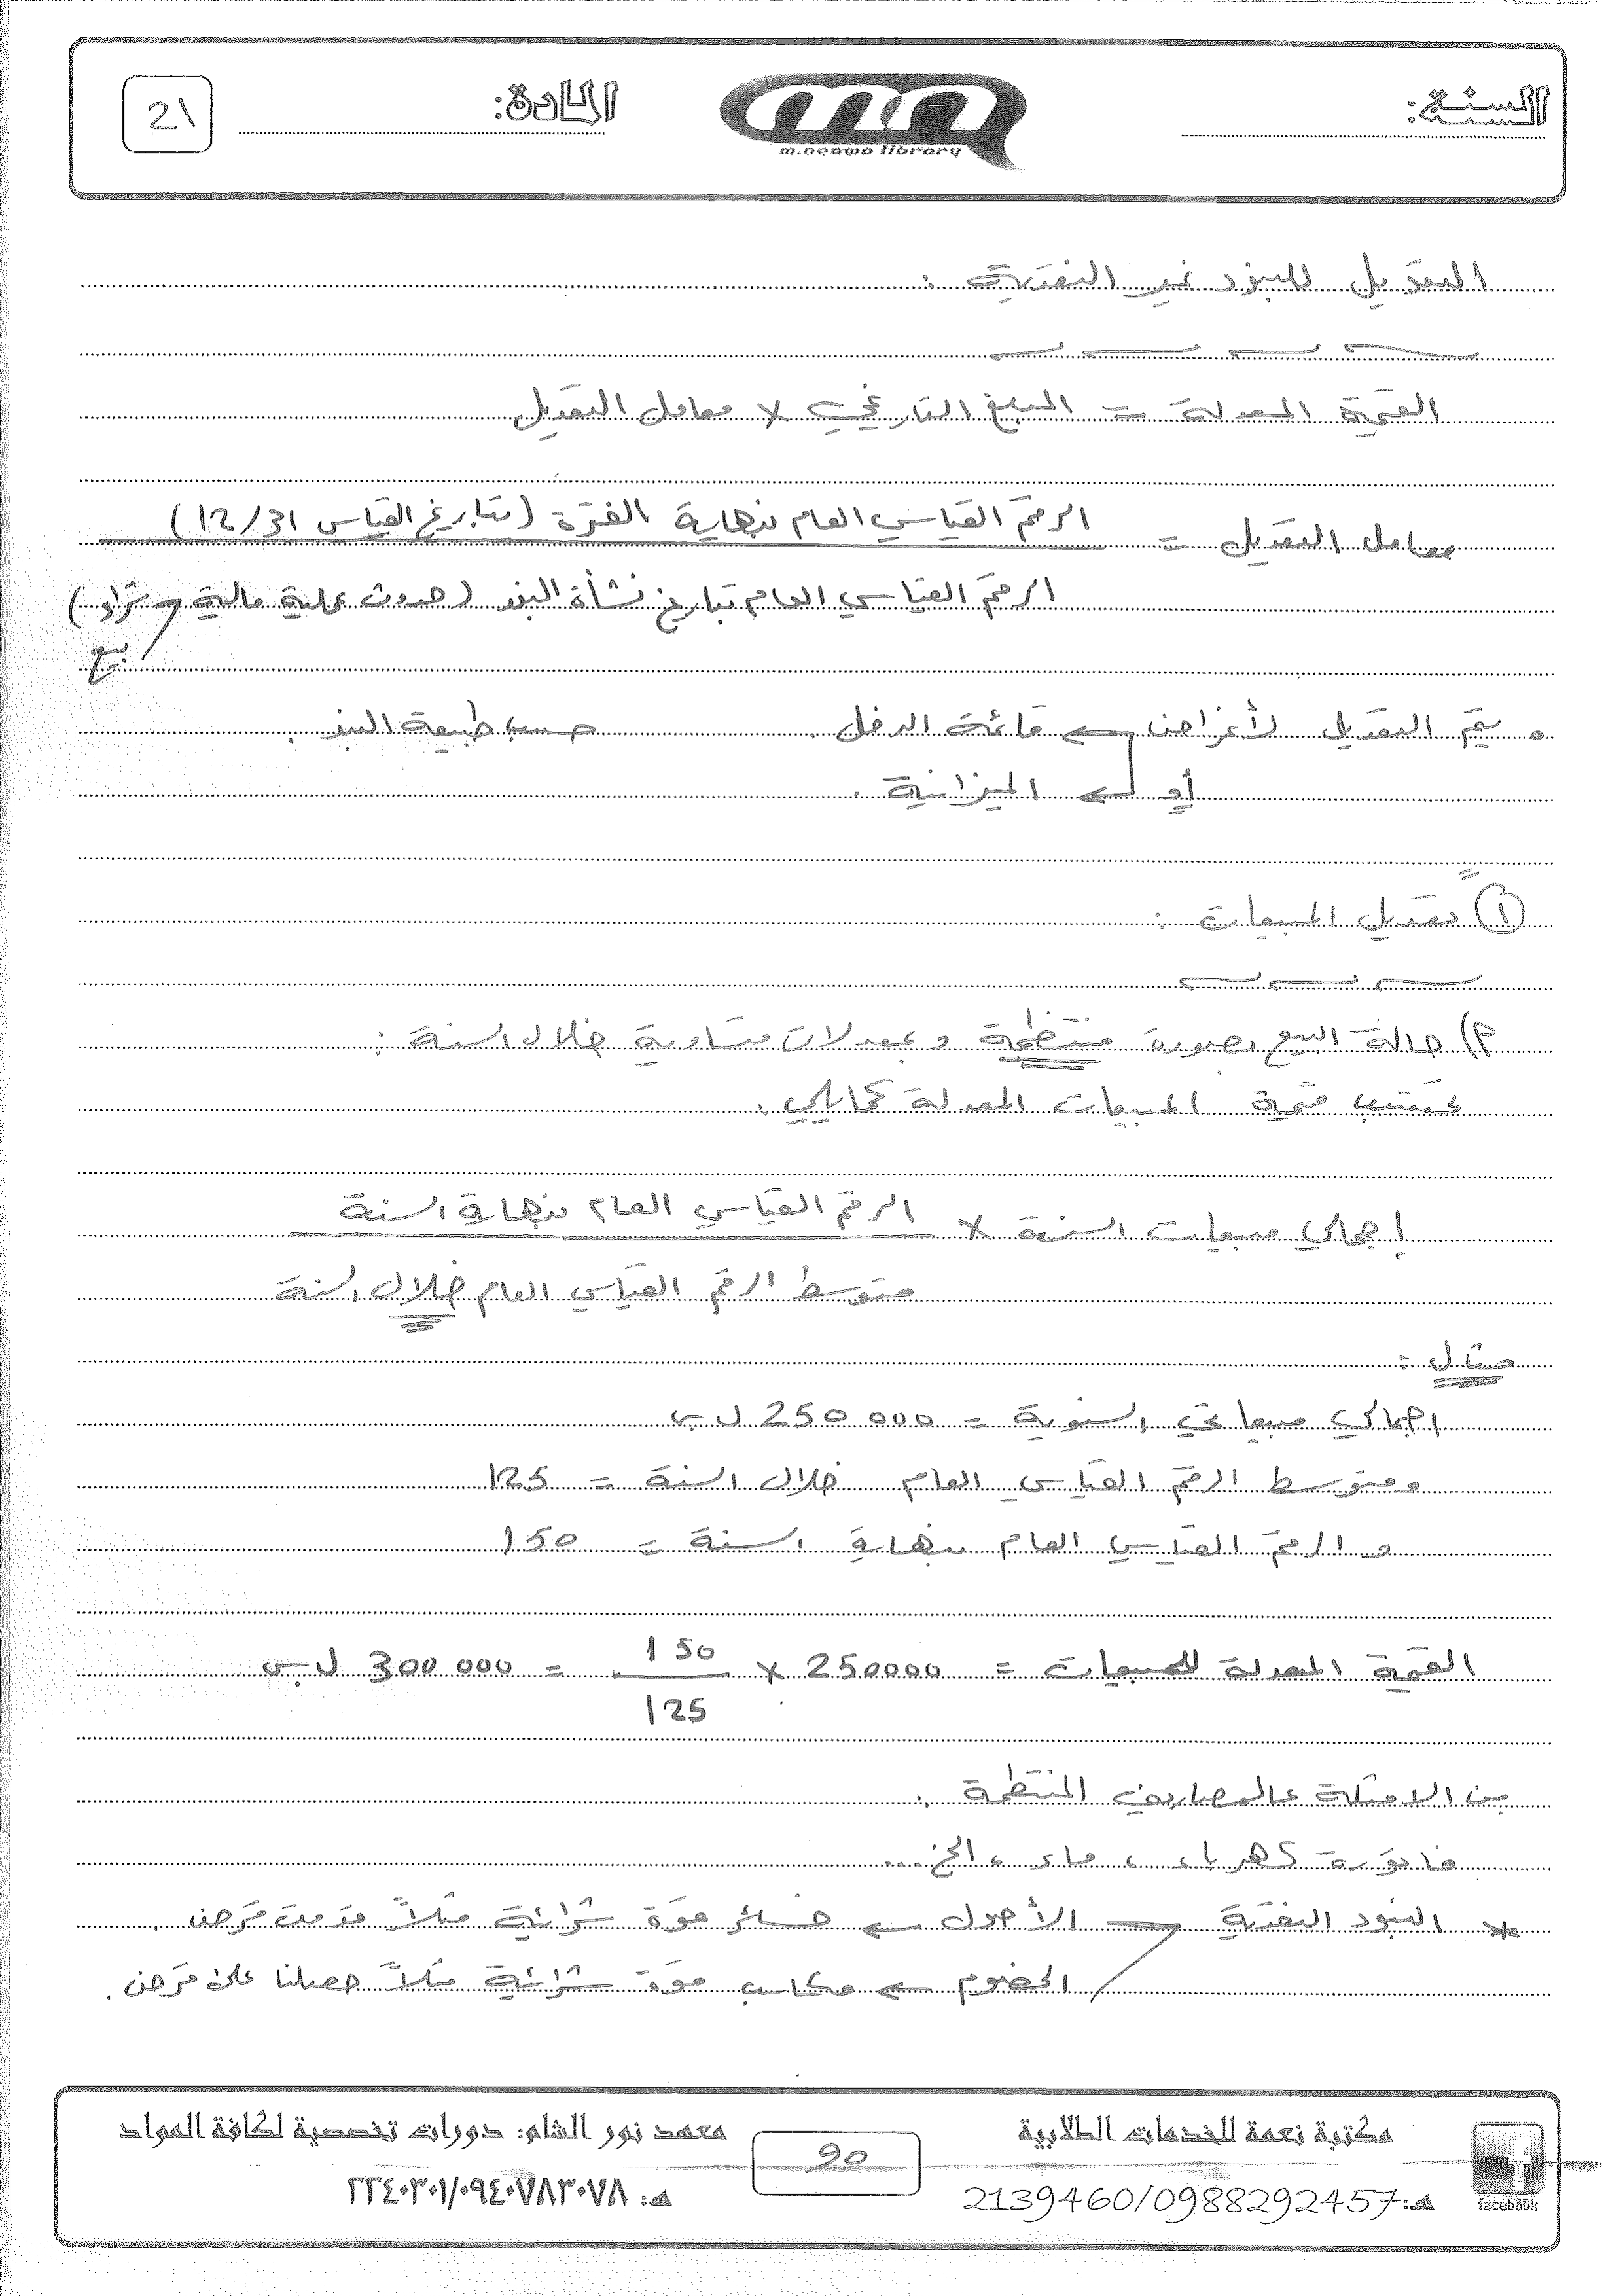 السنة:
m.neama library
المادة:
21
التعديل للبنود غير النقدية :
القيمة المعدلة = المبلغ التاريخي × معامل التعديل
معامل التعديل = الرقم القياسي العام بنهاية الفترة (بتاريخ القياس 12/31)
الرقم القياسي العام بتاريخ نشأة البند (حدوث عملية مالية شراء)
بيع
• يتم التعديل لأغراض ← قائمة الدخل . حسب طبيعة البند .
أو ← الميزانية .
① تعديل المبيعات :
P) حالة البيع بصورة منتظمة وبمعدلات متساوية خلال السنة :
تحتسب قيمة المبيعات المعدلة كمايلي .
إجمالي مبيعات السنة × الرقم القياسي العام بنهاية السنة
متوسط الرقم القياسي العام خلال السنة
مثال :
اجمالي مبيعاتي السنوية = 250 000 ل.س
ومتوسط الرقم القياسي العام خلال السنة = 125
و الرقم القياسي العام بنهاية السنة = 150
القيمة المعدلة للمبيعات = 250000 × 150 = 300 000 ل.س
125
من الامثلة عالمصاريف المنتظمة :
فاتورة كهرباء ، ماء ، الخ...
* البنود النقدية الأصول ← خسائر قوة شرائية مثلاً قدمت قرض .
الخصوم ← مكاسب قوة شرائية مثلاً حصلنا على قرض .
مكتبة نعمة للخدمات الطلابية
هـ: 2139460/0988292457
facebook
90
معهد نور الشام: دورات تخصصية لكافة المواد
هـ: ٢٢٤٠٣٠١/٠٩٤٠٧٨٣٠٧٨